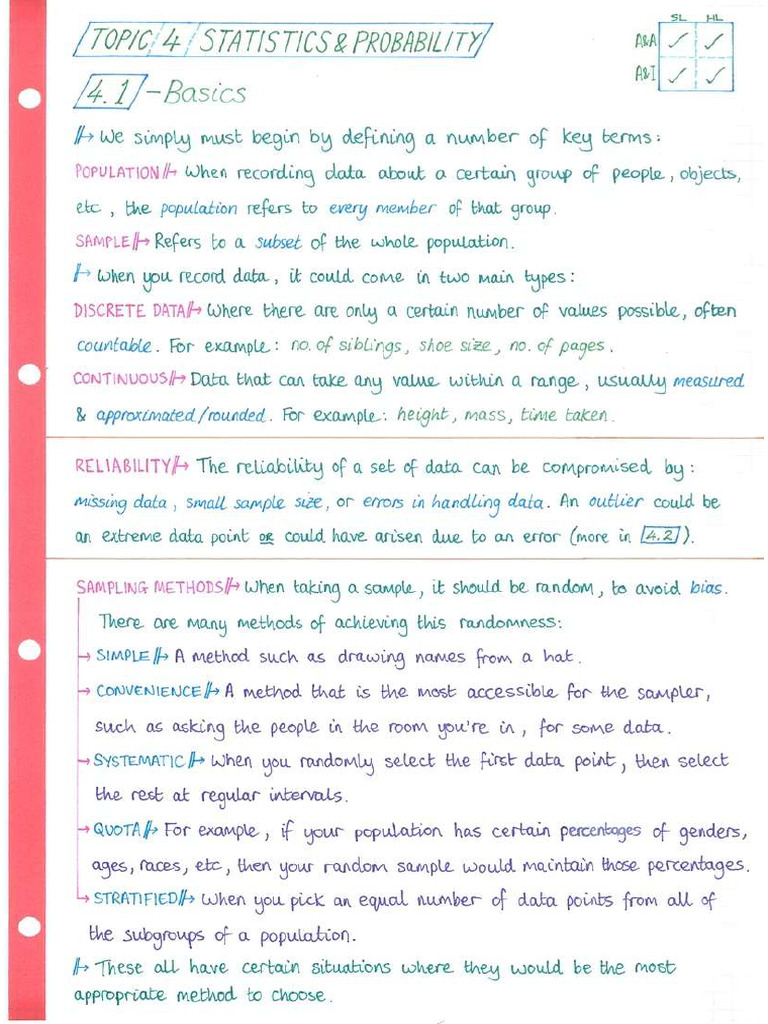 TOPIC 4 STATISTICS & PROBABILITY
SL HL
A&A ✓ ✓
A&I ✓ ✓
4.1 - Basics
↦ We simply must begin by defining a number of key terms:
POPULATION ↦ When recording data about a certain group of people, objects,
etc, the population refers to every member of that group.
SAMPLE ↦ Refers to a subset of the whole population.
↦ When you record data, it could come in two main types:
DISCRETE DATA ↦ Where there are only a certain number of values possible, often
countable. For example: no. of siblings, shoe size, no. of pages.
CONTINUOUS ↦ Data that can take any value within a range, usually measured
& approximated/rounded. For example: height, mass, time taken.
RELIABILITY ↦ The reliability of a set of data can be compromised by:
missing data, small sample size, or errors in handling data. An outlier could be
an extreme data point or could have arisen due to an error (more in 4.2).
SAMPLING METHODS ↦ When taking a sample, it should be random, to avoid bias.
There are many methods of achieving this randomness:
→ SIMPLE ↦ A method such as drawing names from a hat.
→ CONVENIENCE ↦ A method that is the most accessible for the sampler,
such as asking the people in the room you're in, for some data.
→ SYSTEMATIC ↦ When you randomly select the first data point, then select
the rest at regular intervals.
→ QUOTA ↦ For example, if your population has certain percentages of genders,
ages, races, etc, then your random sample would maintain those percentages.
→ STRATIFIED ↦ When you pick an equal number of data points from all of
the subgroups of a population.
↦ These all have certain situations where they would be the most
appropriate method to choose.